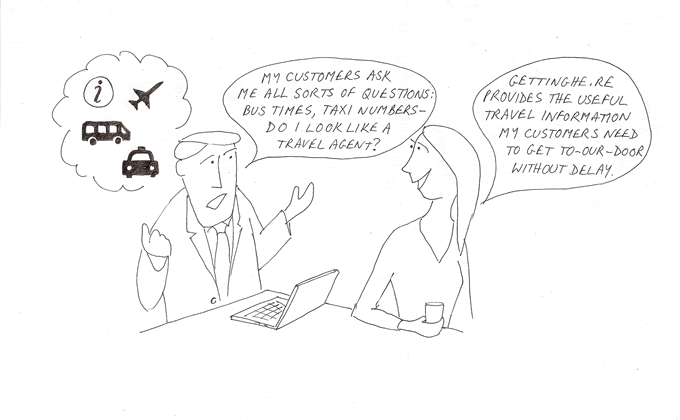 i
MY CUSTOMERS ASK
ME ALL SORTS OF QUESTIONS:
BUS TIMES, TAXI NUMBERS-
DO I LOOK LIKE A
TRAVEL AGENT?
GETTINGHE.RE
PROVIDES THE USEFUL
TRAVEL INFORMATION
MY CUSTOMERS NEED
TO GET TO-OUR-DOOR
WITHOUT DELAY.